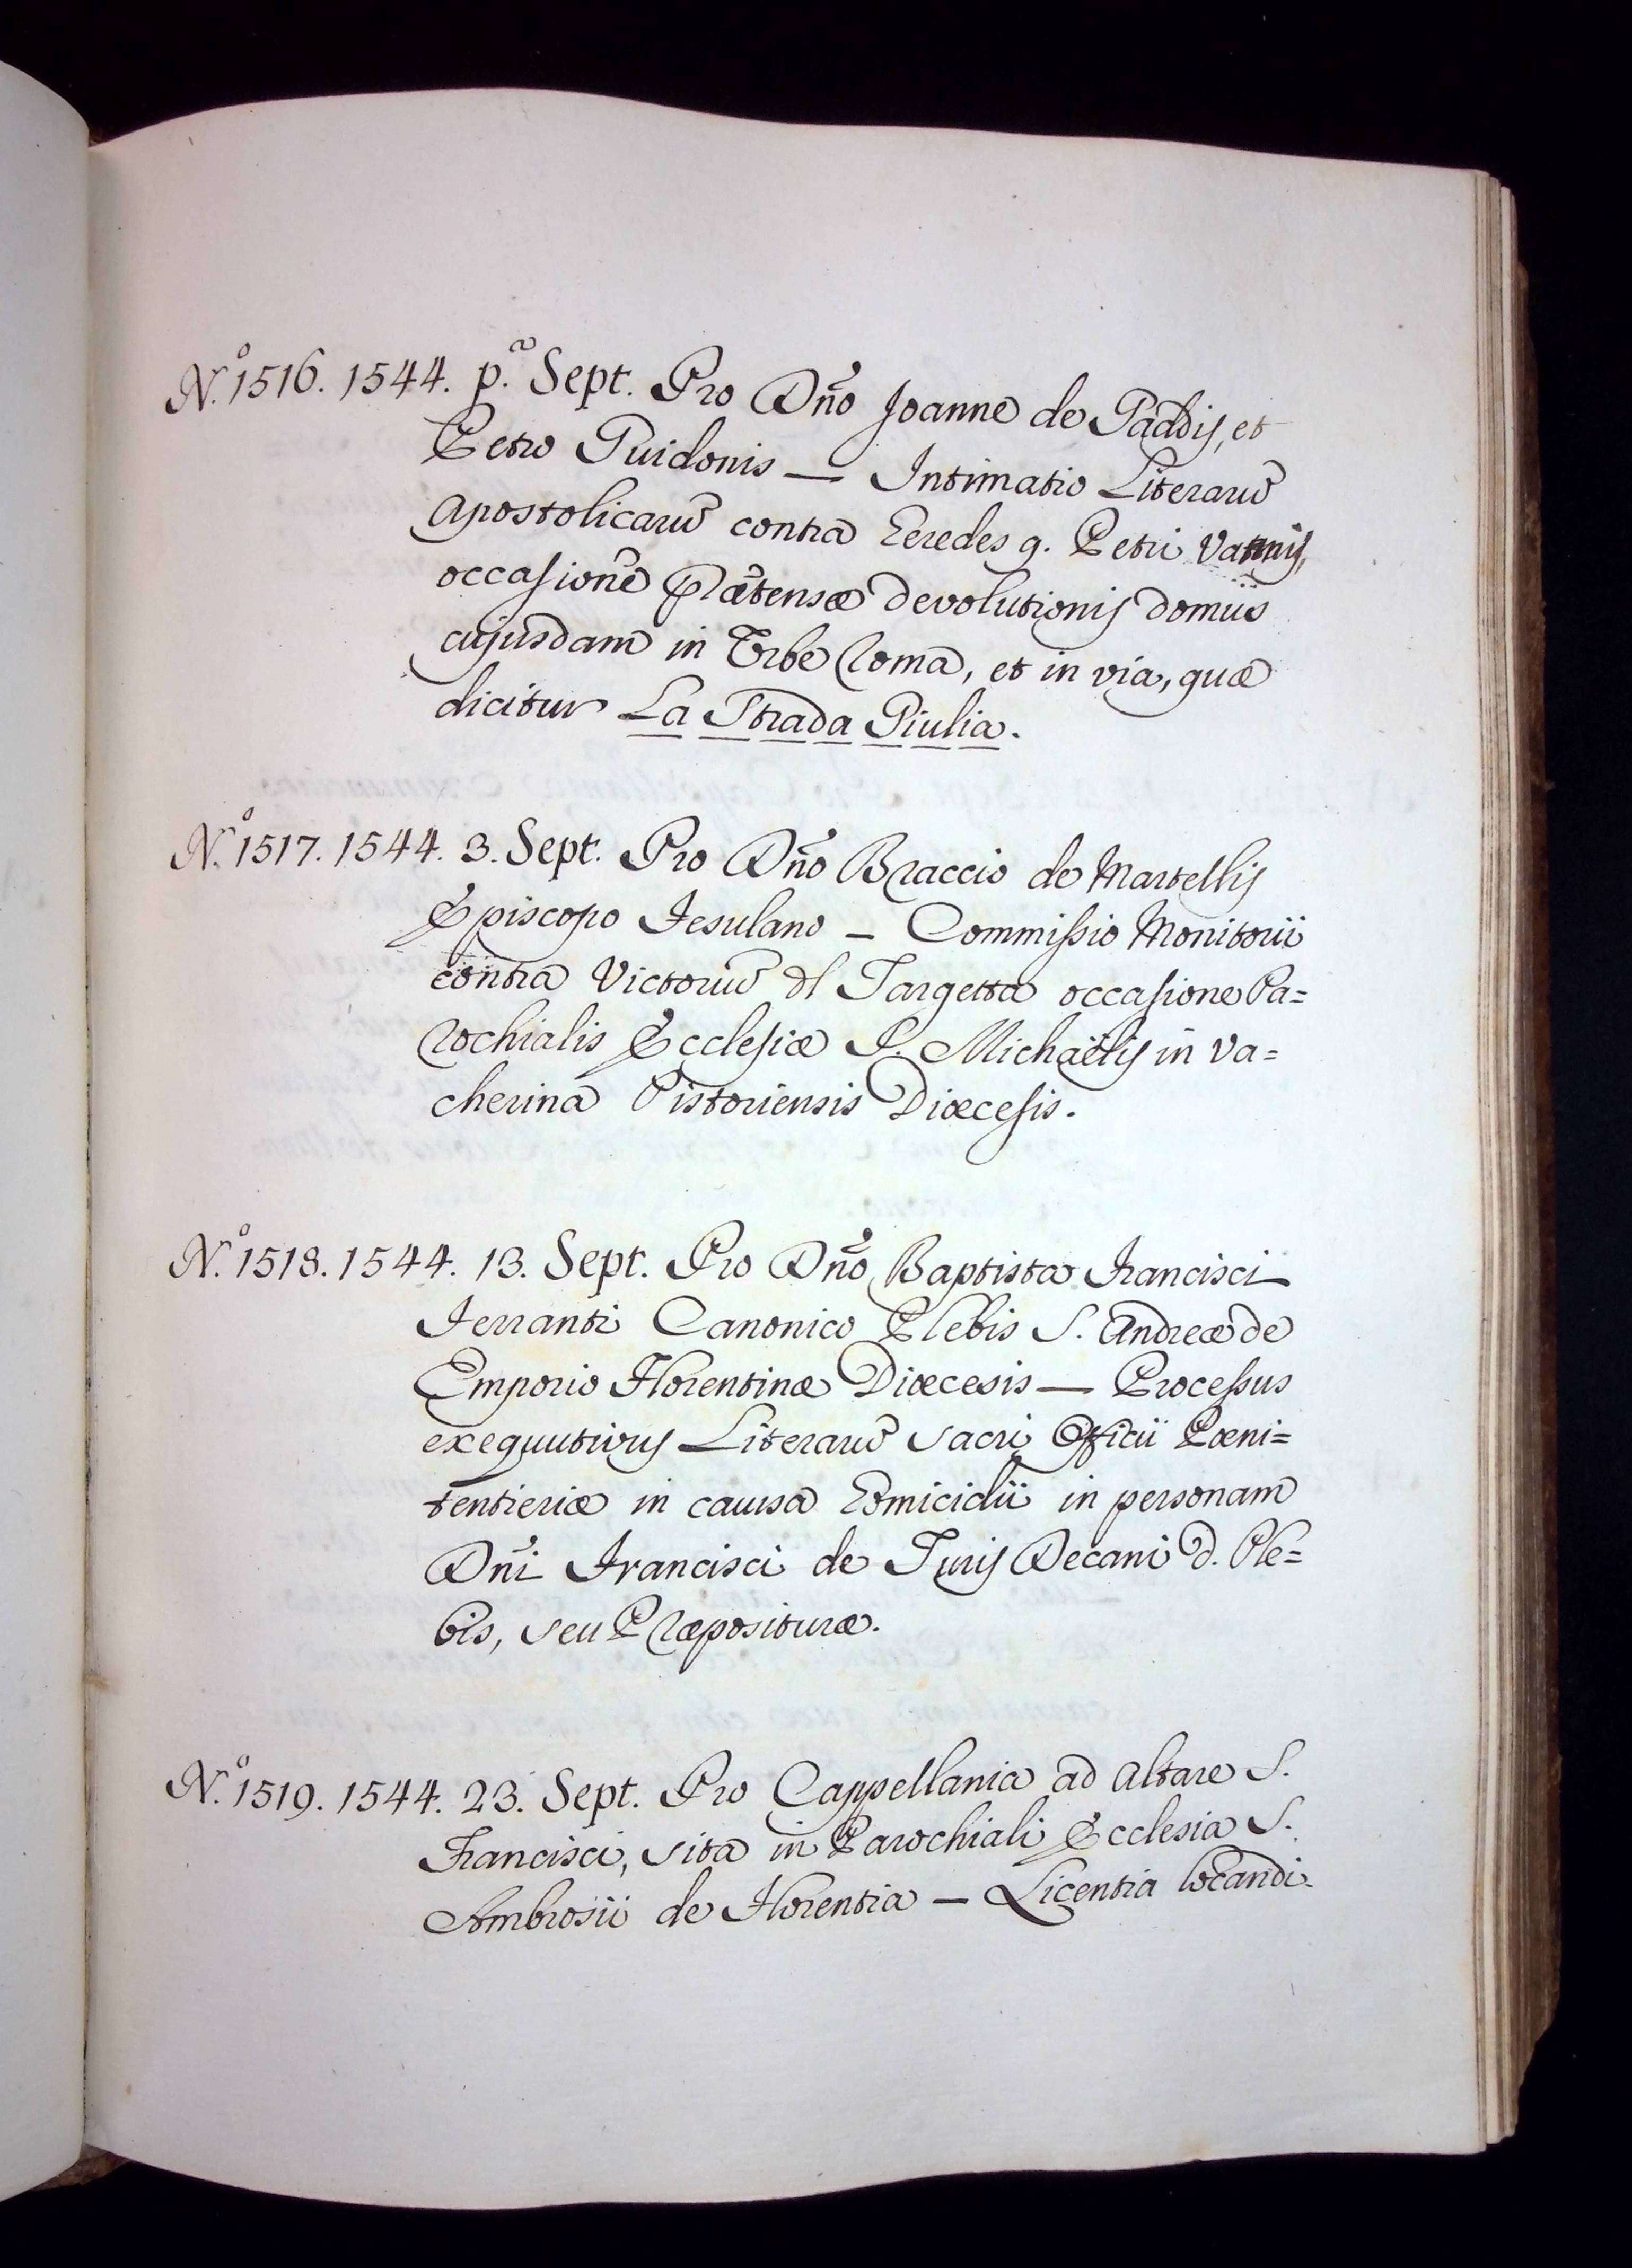 N.º 1516. 1544. p.ª Sept. Pro Dño Joanne de Gaddis, et
Petro Guidonis — Intimatio Literarũ
Apostolicarũ contra Heredes q. Petri Vannis,
occasione prætensæ devolutionis domus
cujusdam in Urbe Roma, et in via, quæ
dicitur La Strada Giulia.
N.º 1517. 1544. 3. Sept. Pro Dño Braccio de Martellis
Episcopo Fesulano – Commissio Monitorii
contra Victoriũ del Targetta occasione Pa=
rochialis Ecclesiæ S. Michaëlis in Va=
cherina Pistoriensis Diœcesis.
N.º 1518. 1544. 13. Sept. Pro Dño Baptista Francisci
Ferranti Canonico Plebis S. Andreæ de
Emporio Florentinæ Diœcesis — Processus
exequutivus Literarũ Sacri Officii Pœni=
tentieriæ in causa Homicidii in personam
Dñi Francisci de Turis Decani d. Ple=
bis, seu Præposituræ.
N.º 1519. 1544. 23. Sept. Pro Cappellania ad Altare S.
Francisci, sita in Parochiali Ecclesia S.
Ambrosii de Florentia — Licentia locandi